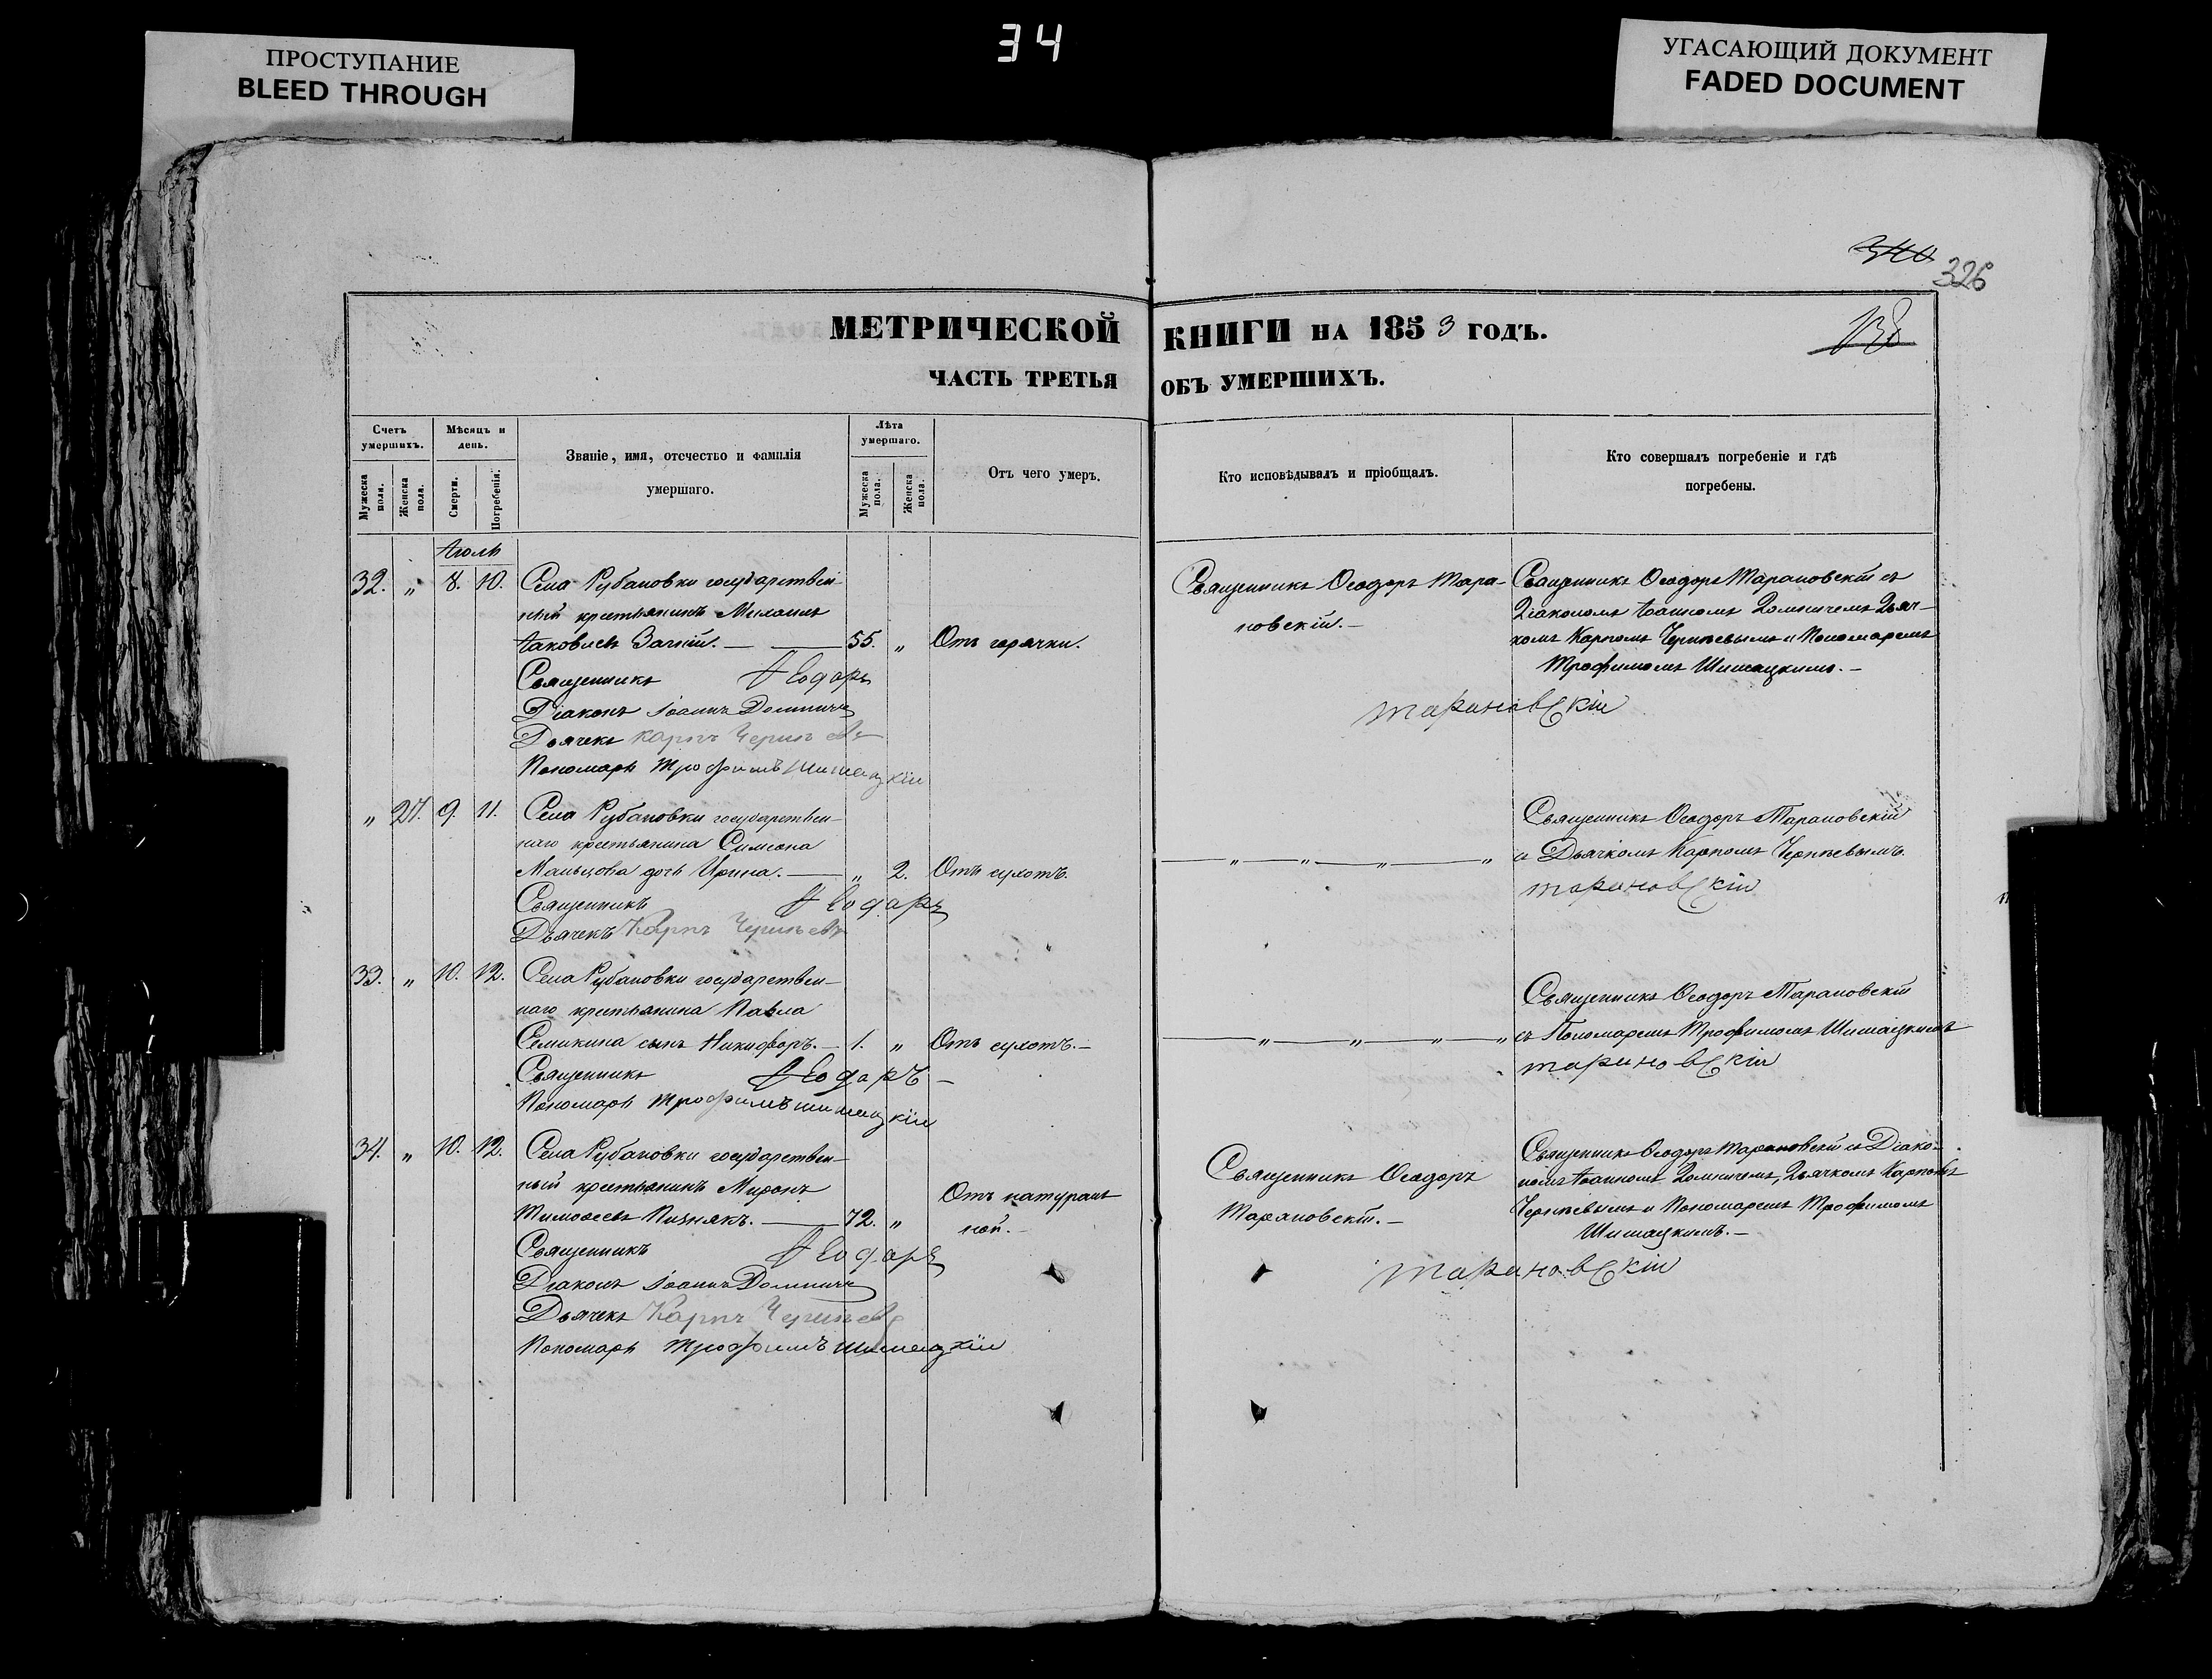 34
ПРОСТУПАНИЕ
BLEED THROUGH
УГАСАЮЩИЙ ДОКУМЕНТ
FADED DOCUMENT
340
326
МЕТРИЧЕСКОЙ КНИГИ НА 1853 ГОДЪ.
ЧАСТЬ ТРЕТЬЯ ОБЪ УМЕРШИХЪ.
Счетъ умершихъ.
Мужеска пола.
Женска пола.
Мѣсяцъ и день.
Смерти.
Погребенія.
Званіе, имя, отечество и фамилія
умершаго.
Лѣта умершаго.
Мужеска пола.
Женска пола.
Отъ чего умеръ.
Кто исповѣдывалъ и пріобщалъ.
Кто совершалъ погребеніе и гдѣ
погребены.
Іюль
32. „ 8. 10. Села Рубановки государствен-
ный крестьянинъ Михаилъ
Іаковлевъ — 55. „ Отъ горячки.
Священникъ Ѳеодоръ
Діаконъ Іоаннъ Домничъ
Дьячекъ Карпъ
Пономарь Трофимъ Шишацкій
Священникъ Ѳеодоръ Тара-
новскій.-
Священникъ Ѳеодоръ Тарановскій съ
Діакономъ Іоанномъ Домничемъ Дьяч-
комъ Карпомъ и Пономаремъ
Трофимомъ Шишацкимъ.-
Тарановскій
„ 27. 9. 11. Села Рубановки государствен-
наго крестьянина Симеона
Мальцова дочь Ирина. — „ 2. Отъ сухотъ.
Священникъ Ѳеодоръ
Дьячекъ Карпъ
— „ — „ — „ — „
Священникъ Ѳеодоръ Тарановскій
съ Дьячкомъ Карпомъ
Тарановскій
33. „ 10. 12. Села Рубановки государствен-
наго крестьянина Павла
Семикина сынъ Никифоръ. — 1. „ Отъ сухотъ.-
Священникъ Ѳеодоръ
Пономарь Трофимъ Шишацкій
— „ — „ — „ — „
Священникъ Ѳеодоръ Тарановскій
съ Пономаремъ Трофимомъ Шишацкимъ
Тарановскій
34. „ 10. 12. Села Рубановки государствен-
ный крестьянинъ Миронъ
Тимоѳеевъ — 72. „ Отъ натураль
ной.-
Священникъ Ѳеодоръ
Діаконъ Іоаннъ Домничъ
Дьячекъ Карпъ
Пономарь Трофимъ Шишацкій
Священникъ Ѳеодоръ
Тарановскій.-
Священникъ Ѳеодоръ Тарановскій съ Діако-
номъ Іоанномъ Домничемъ, Дьячкомъ Карпомъ
и Пономаремъ Трофимомъ
Шишацкимъ.-
Тарановскій